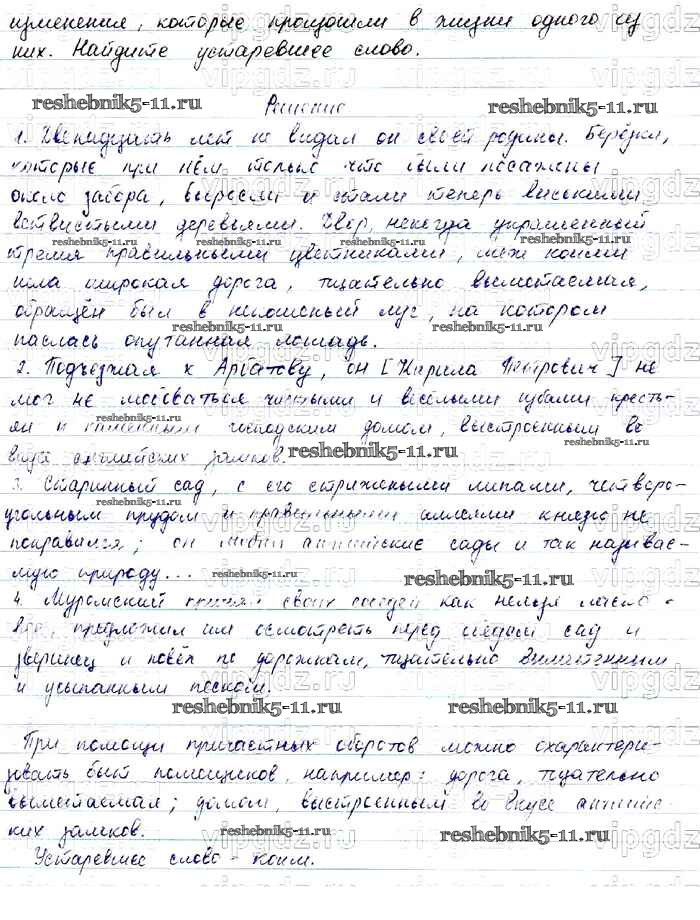 изменения, которые произошли в жизни одного из
них. Найдите устаревшее слово.
reshebnik5-11.ru
Решение
reshebnik5-11.ru
1. Двенадцать лет не видал он своей родины. Берёзки,
которые при нём только что были посажены
около забора, выросли и стали теперь высокими
ветвистыми деревьями. Двор, некогда украшенный
reshebnik5-11.ru
reshebnik5-11.ru
тремя правильными цветниками, меж коими
шла широкая дорога, тщательно выметаемая,
обращён был в некошеный луг, на котором
reshebnik5-11.ru
паслась опутанная лошадь.
2. Подъезжая к Арбатову, он [Кирила Петрович] не
мог не любоваться чистыми и весёлыми избами кресть-
ян и каменным господским домом, выстроенным во
reshebnik5-11.ru
вкусе английских замков.
reshebnik5-11.ru
3. Старинный сад, с его стрижеными липами, четверо-
угольным прудом и правильными аллеями князю не
понравился; он любил английские сады и так называе-
мую природу...
reshebnik5-11.ru
reshebnik5-11.ru
4. Муромский принял своих соседей как нельзя ласко-
вее, предложил им осмотреть перед обедом сад и
зверинец и повёл по дорожкам, тщательно выметенным
и усыпанным песком.
reshebnik5-11.ru
reshebnik5-11.ru
При помощи причастных оборотов можно охарактери-
зовать быт помещиков, например: дорога, тщательно
выметаемая; домом, выстроенным во вкусе английс-
ких замков.
reshebnik5-11.ru
reshebnik5-11.ru
Устаревшее слово - коим.
vipgdz.ru